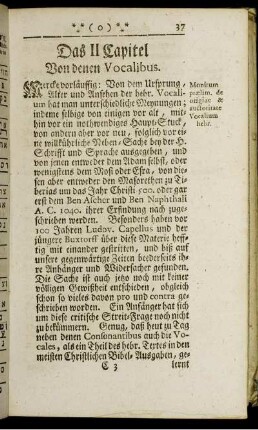 **(o)** 37
Das II Capitel
Von denen Vocalibus.
Mercke vorläuffig: Von dem Ursprung,
Alter und Ansehen der hebr. Vocali-
um hat man unterschiedliche Meynungen;
indeme selbige von einigen vor alt, mit-
hin vor ein nothwendiges Haupt-Stuck,
von andern aber vor neu, folglich vor ei-
ne willkührliche Neben-Sache bey der H.
Schrifft und Sprache ausgegeben, und
von jenen entweder dem Adam selbst, oder
wenigstens dem Mose oder Esra, von die-
sen aber entweder den Masorethen zu Ti-
berias um das Jahr Christi 500. oder gar
erst dem Ben Ascher und Ben Naphthali
A. C. 1040. ihrer Erfindung nach zuge-
schrieben werden. Besonders haben vor
100 Jahren Ludov. Capellus und der
jüngere Buxtorff über diese Materie heff-
tig mit einander gestritten, und biß auf
unsere gegenwärtige Zeiten beederseits ih-
re Anhänger und Widersacher gefunden.
Die Sache ist auch jetzo noch mit keiner
völligen Gewißheit entschieden, obgleich
schon so vieles davon pro und contra ge-
schrieben worden. Ein Anfänger hat sich
um diese critische Streit-Frage noch nicht
zu bekümmern. Genug, daß heut zu Tag
neben denen Consonantibus auch die Vo-
cales, als ein Theil des hebr. Textes in den
meisten Christlichen Bibel-Ausgaben, ge-
C 3 lernt
Monitum
prælim. de
origine &
auctoritate
Vocalium
hebr.